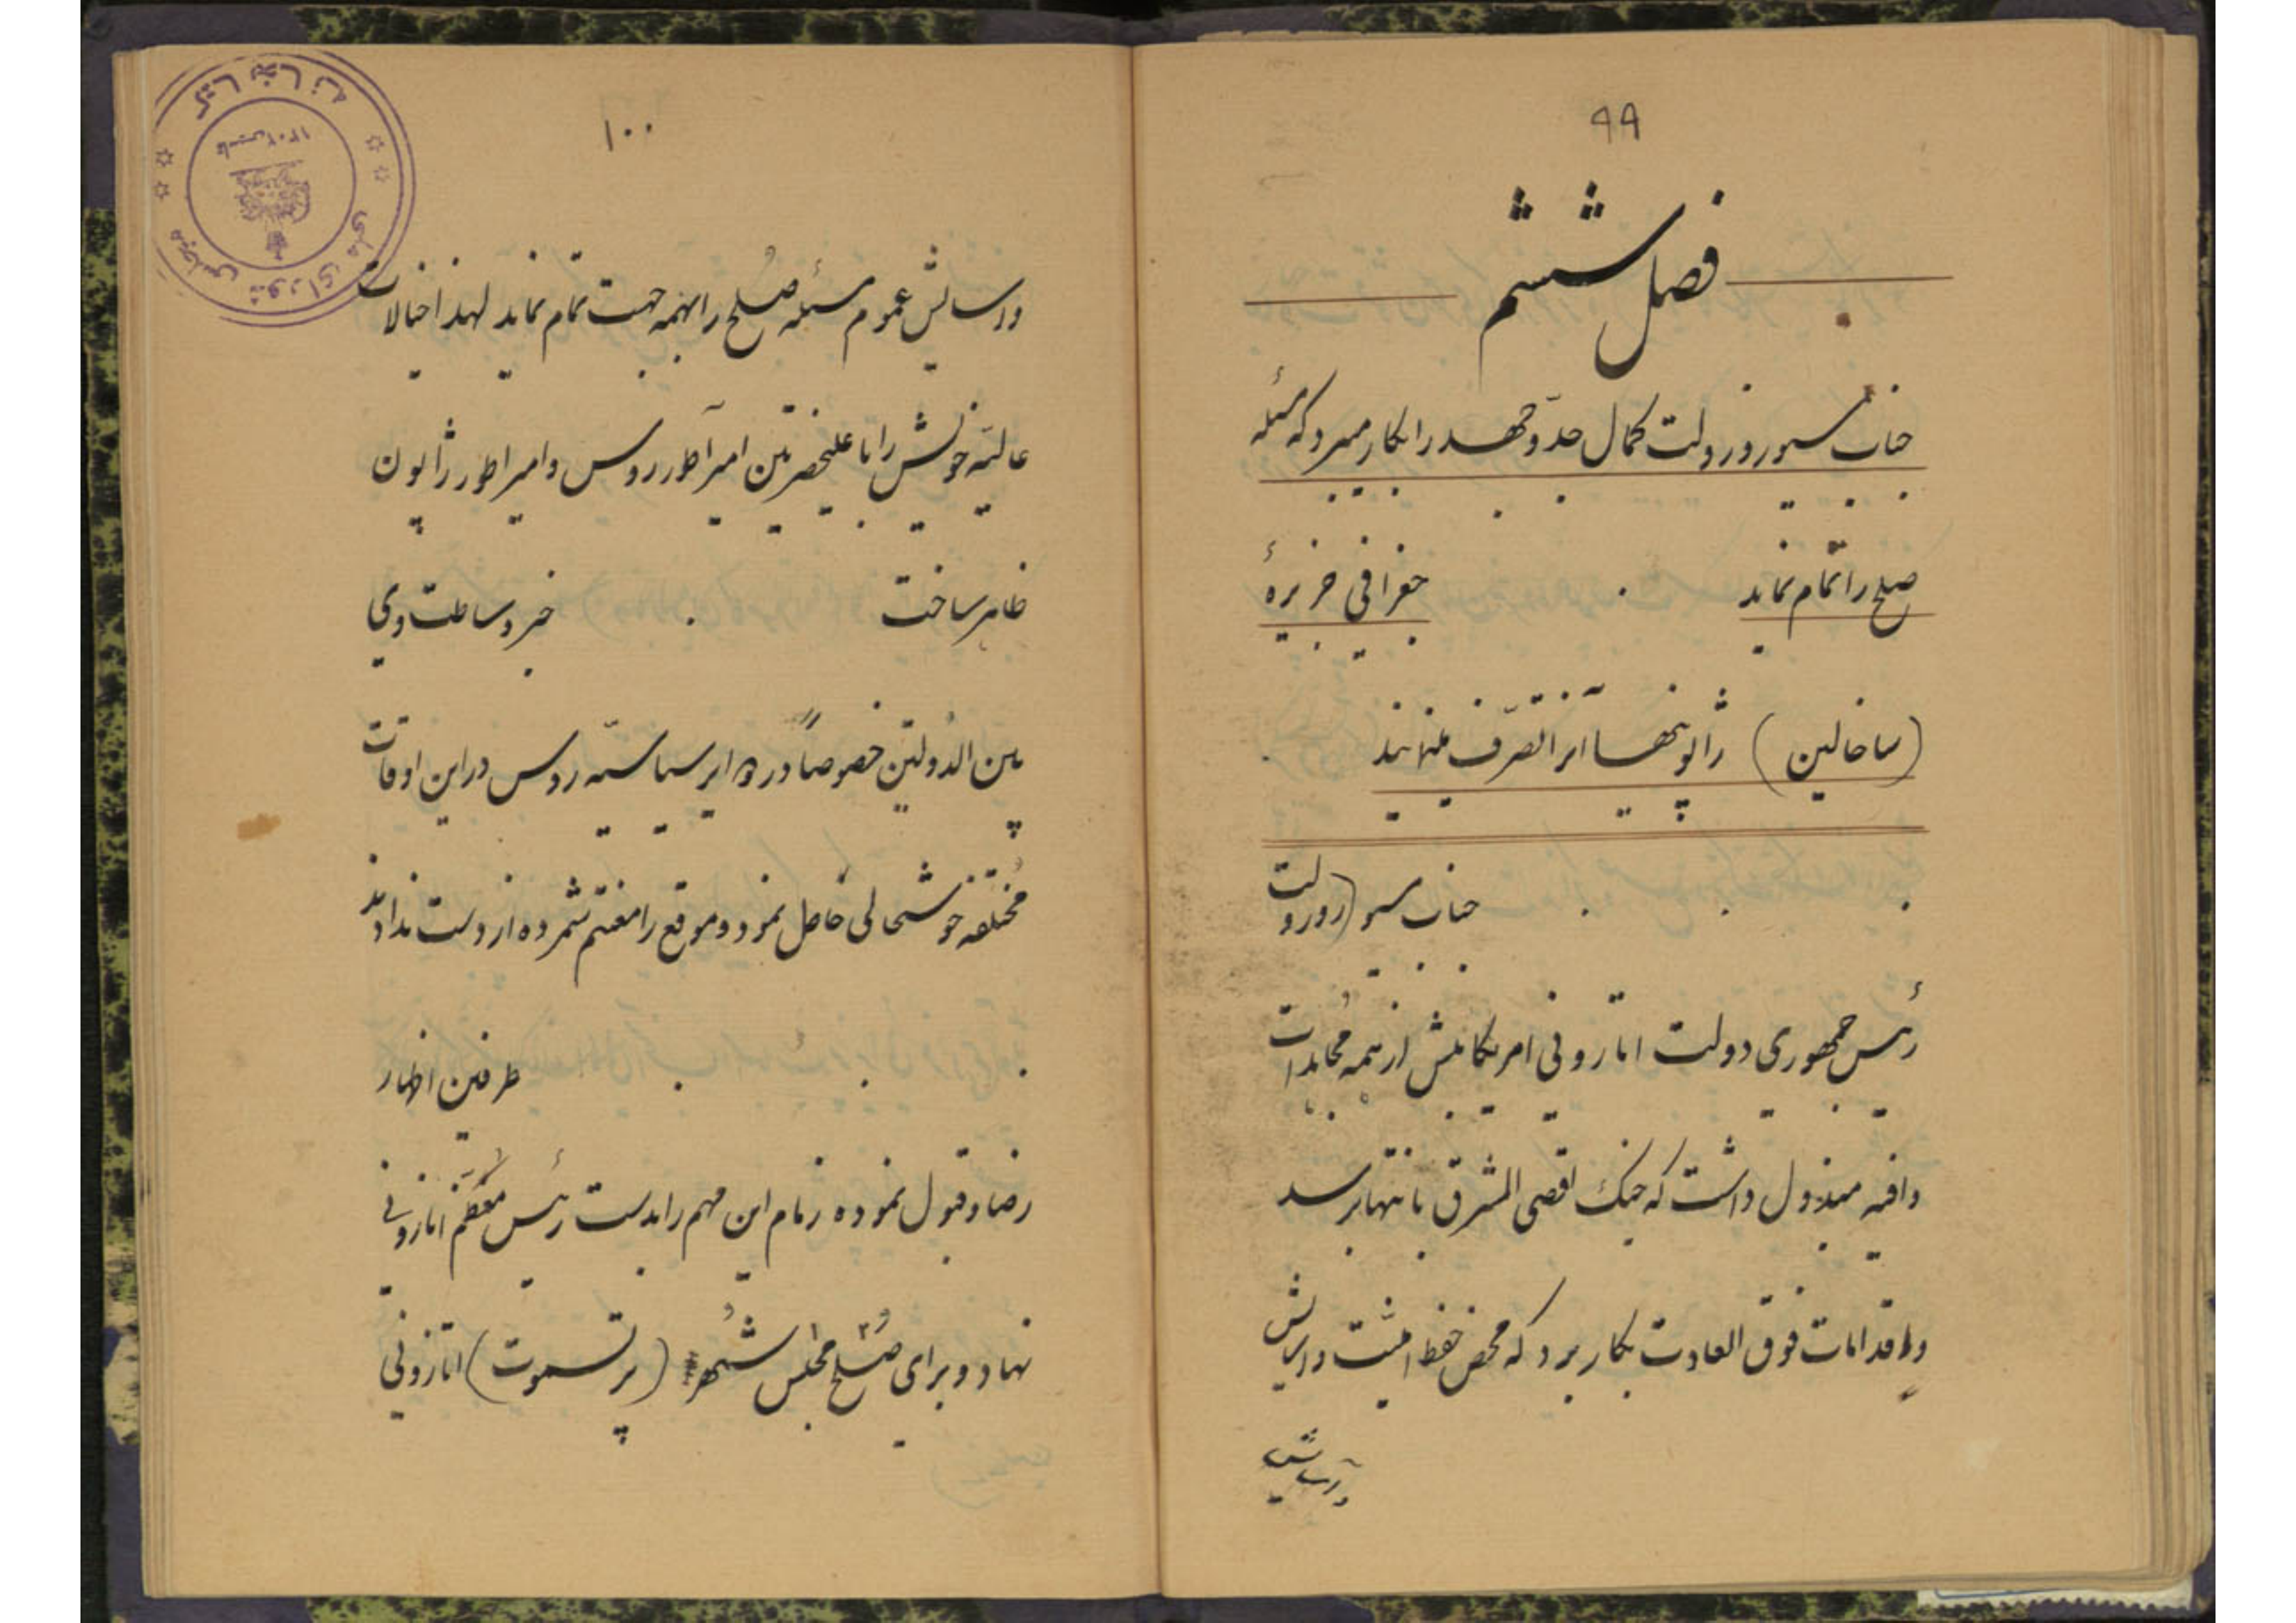 ۹۹
فصل ششم
جناب مسیو روزولت کمال جدّ و جهد را بکار میبرد که مسئله
صلح را تمام نماید . جغرافی جزیرهٔ
(ساخالین) ژاپونیها آنرا تصرّف مینمایند
. . . جناب مسیو (روزولت
رئیس جمهوری دولت اتازونی امریکا بیش از همه مُجاهدات
وافیه مبذول داشت که جنک اقصی المشرق بانتها برسد
و اقدامات فوق العادت بکار برد که محض حفظ امنیت و آسایش
و آسایش
۱۰۰
و آسایش عموم مسئله صُلح را بهمه جهت تمام نماید لهذا خیالات
عالیّه خویش را با علیحضرتین امپراطور روس و امپراطور ژاپون
ظاهر ساخت . خبر وساطت وی
بین الدُولتین خصوصاً در دوایر سیاسیّه روس در این اوقات
مُختلفه خوشحالی حاصل نمود و موقع را مغتنم شمرده از دست ندادند
. . . طرفین اظهار
رضا و قبول نموده زمام این مهم را بدست رئیس مُعظّم اتازونی
نهاد و برای صُلح مجلس شهر (پرتسموت) اتازونی
کتابخانه
مجلس شورای ملی
تأسیس ۱۳۰۲